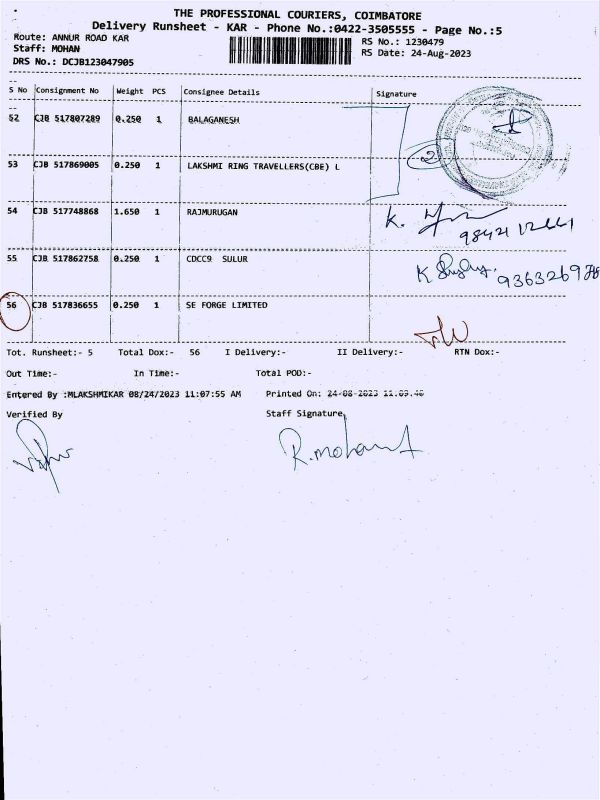 THE PROFESSIONAL COURIERS, COIMBATORE
Delivery Runsheet - KAR - Phone No.:0422-3505555 - Page No.:5
Route: ANNUR ROAD KAR
RS No.: 1230479
Staff: MOHAN
RS Date: 24-Aug-2023
DRS No.: DCJB123047905
S No Consignment No Weight PCS Consignee Details Signature
52 CJB 517807289 0.250 1 BALAGANESH
2
53 CJB 517869005 0.250 1 LAKSHMI RING TRAVELLERS(CBE) L
54 CJB 517748868 1.650 1 RAJMURUGAN K.
55 CJB 517862758 0.250 1 CDCC9 SULUR K
56 CJB 517836655 0.250 1 SE FORGE LIMITED
Tot. Runsheet:- 5 Total Dox:- 56 I Delivery:- II Delivery:- RTN Dox:-
Out Time:- In Time:- Total POD:-
Entered By :MLAKSHMIKAR 08/24/2023 11:07:55 AM Printed On: 24-08-2023
Verified By Staff Signature
R.mohan